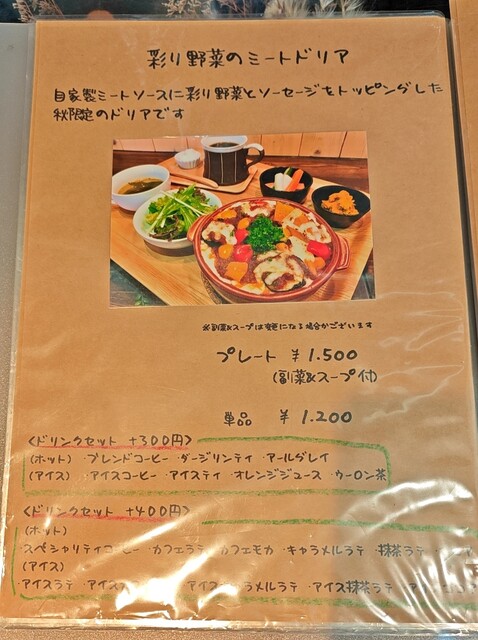 彩り野菜のミートドリア
自家製ミートソースに彩り野菜とソーセージをトッピングした
秋限定のドリアです
※副菜&スープは変更になる場合がございます
プレート ¥1.500
(副菜&スープ付)
単品 ¥1.200
<ドリンクセット +300円>
(ホット) ・ブレンドコーヒー ・ダージリンティ ・アールグレイ
(アイス) ・アイスコーヒー ・アイスティ ・オレンジジュース ・ウーロン茶
<ドリンクセット +400円>
(ホット)
・スペシャリティコーヒー ・カフェラテ ・カフェモカ ・キャラメルラテ ・抹茶ラテ
(アイス)
・アイスラテ ・アイス ・アイス ラメルラテ ・アイス抹茶ラテ